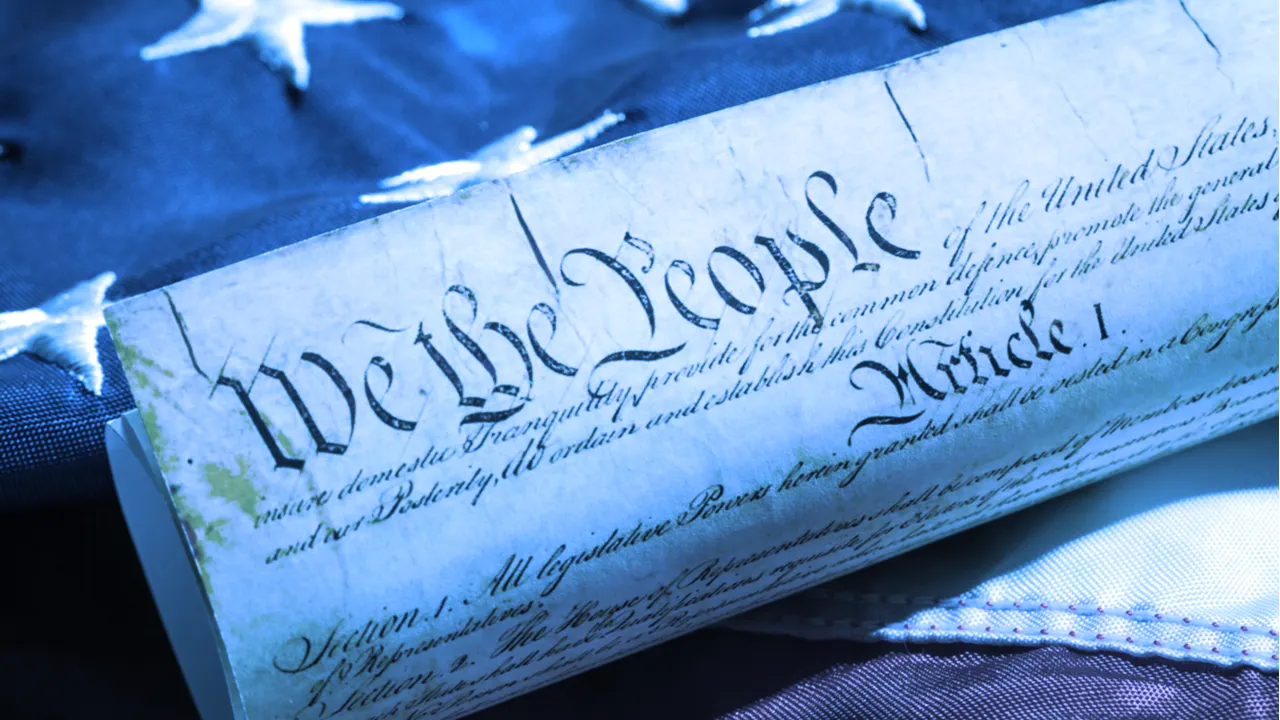 We the People of the United States,
insure domestic Tranquility, provide for the common defence, promote the general
and our Posterity, do ordain and establish this Constitution for the United States
Article. I.
Section. 1. All legislative Powers herein granted shall be vested in a Congress
of Representatives.
Section. 2. The House of Representatives shall be composed of Members chosen